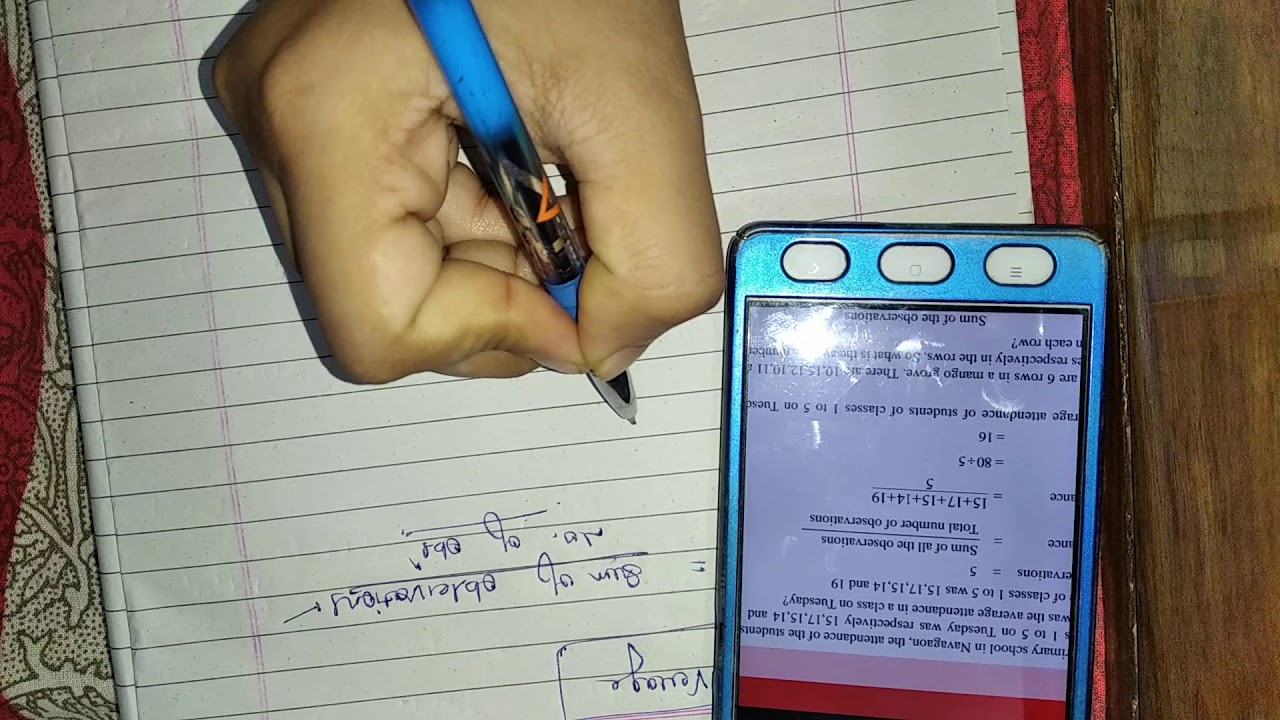 Verage
= Sum of observations
No. of obs.
rimary school in Navagaon, the attendance of the students
s 1 to 5 on Tuesday was respectively 15,17,15,14 and
was the average attendance in a class on Tuesday?
of classes 1 to 5 was 15,17,15,14 and 19
ervations = 5
ance = Sum of all the observations
Total number of observations
ance = 15+17+15+14+19
5
= 80÷5
= 16
rage attendance of students of classes 1 to 5 on Tuesd
are 6 rows in a mango grove. There are 10,15,12,10,11
es respectively in the rows. So what is the number
n each row?
Sum of the observations